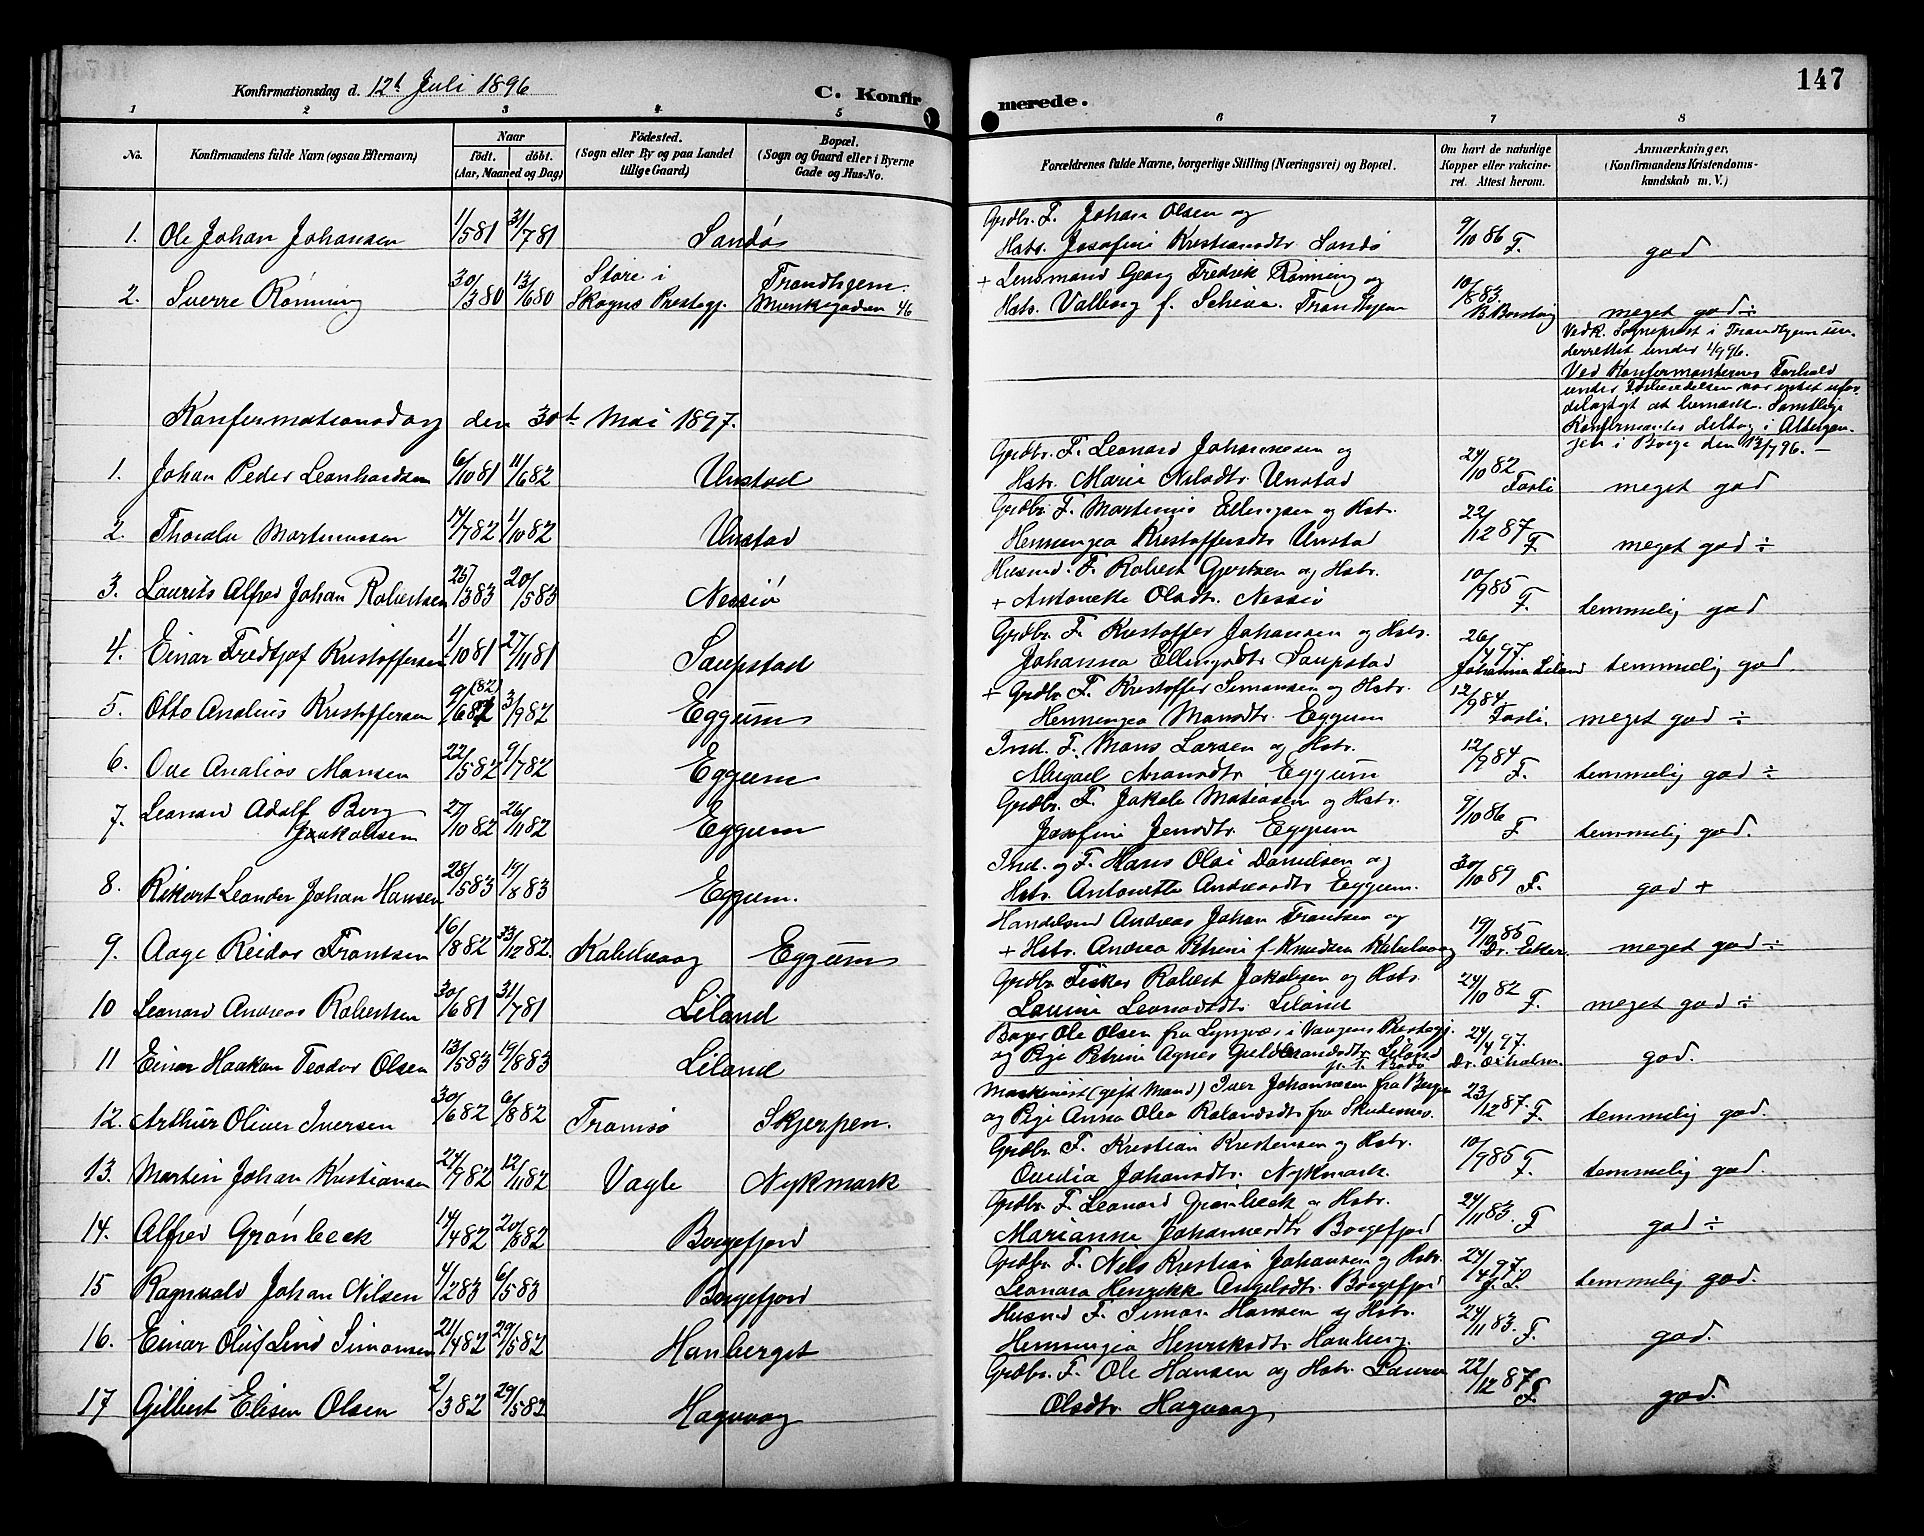 147
Konfirmationsdag d. 12t Juli 1896
C. Konfirmerede.
1 2 3 4 5 6 7 8
No.
Konfirmandens fulde Navn (ogsaa Efternavn)
Naar
födt. döbt.
(Aar, Maaned og Dag)
Födested.
(Sogn eller By og paa Landet
tillige Gaard)
Bopæl.
(Sogn og Gaard eller i Byerne
Gade og Hus-No.
Forældrenes fulde Navne, borgerlige Stilling (Næringsvei) og Bopæl.
Om havt de naturlige
Kopper eller vakcine-
ret. Attest herom.
Anmærkninger.
(Konfirmandens Kristendoms-
kundskab m. V.)
1. Ole Johan Johansen 1/5 81 31/7 81 Sandø
Grdbr. F. Johan Olsen og
Hstr. Josefine Kristiansdtr Sandø 9/10 86 F. god
2. Sverre Rønning 30/3 80 13/6 80 Støre i
Skogns Prestegj. Trondhjem
Munkegaden 46
+ Lensmand Georg Fredrik Rønning og
Hstr. Valborg f. Trondhjem 10/8 83. meget god ÷
Vedk. Sogneprest i Trondhjem un-
derrettet under 4/9 96.
Ved Konfirmanternes Forhold
under Forberedelsen var intet ufor-
delagtigt at bemærke. Samtlige
Konfirmanter deltog i Altergan-
gen i Borge den 12/7 96. –
Konfermationsdag den 30te Mai 1897.
1. Johan Peder Leonhardsen 6/10 81 11/6 82 Unstad
Grdbr. F. Leonard Johannesen og
Hstr. Marie Nilsdtr Unstad 24/10 82 Fasli meget god
2. Thoralv Martinussen 17/7 82 1/10 82 Unstad
Grdbr. F. Martinus Ellingsen og Hstr.
Henningea Kristoffersdtr Unstad 22/12 87 F. meget god ÷
3. Laurits Alfred Johan Robertsen 25/3 83 20/5 83 Nessiø
Husmd. F. Robert Gjertsen og Hstr.
+ Antonette Olsdtr. Nessiø 10/9 85 F. temmelig god
4. Einar Fredtjof Kristoffersen 1/10 81 27/11 81 Saupstad
Grdbr. F. Kristoffer Johansen og Hstr.
Johanna Ellingsdtr Saupstad 26/4 97 Johanna Leland temmelig god
5. Otto Analius Kristoffersen 9/6 82 (82) 3/9 82 Eggum
+ Grdbr. F. Kristoffer Simonsen og Hstr.
Henningea Mansdtr. Eggum 12/9 84 Fasli. meget god ÷
6. Ove Analios Mansen 22/5 82 9/7 82 Eggum
Ind. F. Mons Larsen og Hstr.
Abigael Aronsdtr Eggum 12/9 84 F. temmelig god ÷
7. Leonard Adolf Berg
Jakobsen 27/10 82 26/11 82 Eggum
Grdbr. F. Jakob Matiasen og Hstr.
Josefine Jensdtr. Eggum 9/10 86 F temmelig god.
8. Rikart Leander Johan Hansen 28/5 83 19/8 83 Eggum.
Ind. og F. Hans Olai Danielsen og
Hstr. Antonette Andreasdtr Eggum. 30/10 89 F. god +
9. Aage Reidar Frantsen 16/8 82 33/12 82. Kabelvaag Eggum
Handelsmd Andreas Johan Frantsen og
+ Hstr. Andrea Petrine f. Knudsen Kabelvaag 19/10 85 meget god ÷
10 Leonard Andreas Robertsen 30/6 81 31/7 81 Leland
Grdbr. Fisker Robert Jakobsen og Hstr.
Lavine Leonardsdtr Leland 24/10 82 F. meget god ÷
11 Einar Haakon Teodor Olsen 13/5 83 19/8 83 Leland
Bager Ole Olsen fra Lyngvær i Vaagens Prestegj.
og Pige Petrine Agnes Guldbrandsdtr Leland
p. t. Bodø 24/4 97. god.
12. Arthur Oliver Iversen 30/6 82 6/8 82 Tromsø Skjerpen.
Maskinist (gift Mand) Iver Johannesen fra Bergen
og Pige Anna Olea Rolandsdtr fra Skudesnes. 23/12 87 F. temmelig god.
13. Martin Johan Kristiansen 24/9 82 12/11 82 Vagle Nykmark
Grdbr. F. Kristian Kristensen og Hstr.
Ovedia Johansdtr. Nykmark. 10/9 85 F. temmelig god.
14. Alfred Grønbeck 14/4 82 20/8 82 Borgefjord
Grdbr. F. Leonard Grønbeck og Hstr.
Marianne Johannesdtr Borgefjord 24/11 83. F god ÷
15 Ragnvald Johan Nilsen 4/2 83 6/5 83 Borgefjord
Grdbr. F. Nils Kristian Johansen og Hstr.
Leonora Henrikke Angelsdtr. Borgefjord 24/4 97. J. L. temmelig god.
16. Einar Oluf Lind Simonsen 21/4 82 29/5 82 Hanberget
Husmd F. Simon Hansen og Hstr.
Henningea Henriksdtr Hanberg. 24/11 83. F. god.
17 Gilbert Elisen Olsen 2/3 82 29/5 82 Hagvaag
Grdbr. F. Ole Hansen og Hstr. Laura
Olsdtr Hagvaag 22/12 87 F. god.